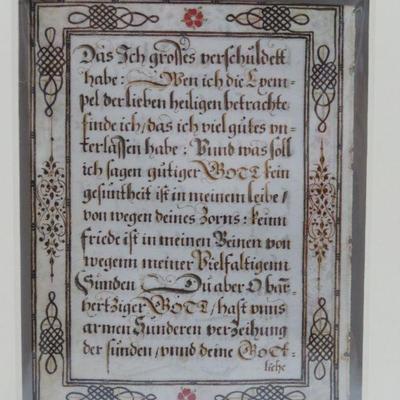 Das Ich grosses verschuldett
habe: Wen ich die Exem-
pel der lieben heiligen betrachte
finde ich / das ich viel gutes vn-
terlassen habe: Vnnd was soll
ich sagen gutiger GOTT kein
gesuntheit ist in meinem leibe /
von wegen deines Zorns: keinn
friede ist in meinen Beinen von
wegenn meiner Vielfaltigenn
Sunden Du aber O bar̄-
hertziger GOTT / hast vnns
armen Sunderen verzeihung
der sunden / vnnd deine Gott-
liche